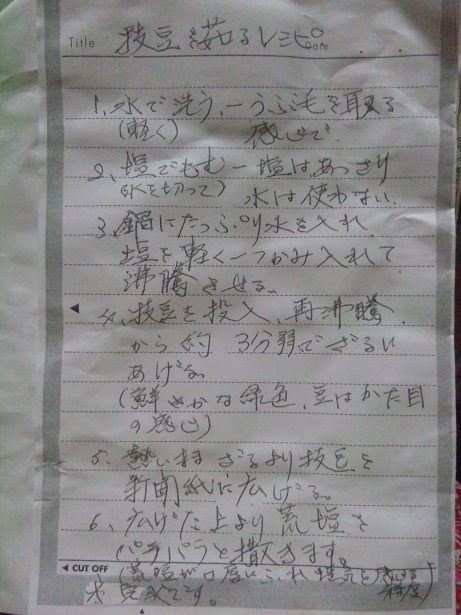 Title 枝豆を茹るレシピ Date
1、水で洗う、ーうぶ毛を取る
(軽く) 感じで
2、塩でもむー塩はあっさり
(水を切って) 水は使わない
3、鍋にたっぷり水を入れ
塩を軽く一つかみ入れて
沸騰させる。
4、枝豆を投入、再沸騰
から約 3分弱でざるに
あげる
(鮮やかな緑色、豆はかた目
の感じ)
5、熱いままざるより枝豆を
新聞紙に広げる。
6、広げた上より荒塩を
パラパラと撒きます。
CUT OFF (荒塩が口唇にふれ塩気を感じる程度)
完成です。